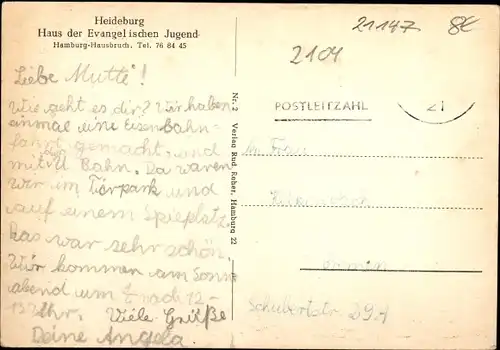 Heideburg
Haus der Evangelischen Jugend
Hamburg-Hausbruch. Tel. 76 84 45
Liebe Mutti!
Wie geht es dir? Wir haben
einmal eine Eisenbahn-
fahrt gemacht, und
mit U Bahn. Da waren
wir im Tierpark und
auf einem Spieplatz.
Das war sehr schön.
Wir kommen am Sonn
abend um nach 12-
13 Uhr. Viele Grüße
Deine Angela
Nr. 2 Verlag Rud. Reher, Hamburg 22
21147
8€
2104
POSTLEITZAHL
21
Frau
Bremen
Schubertstr. 29A